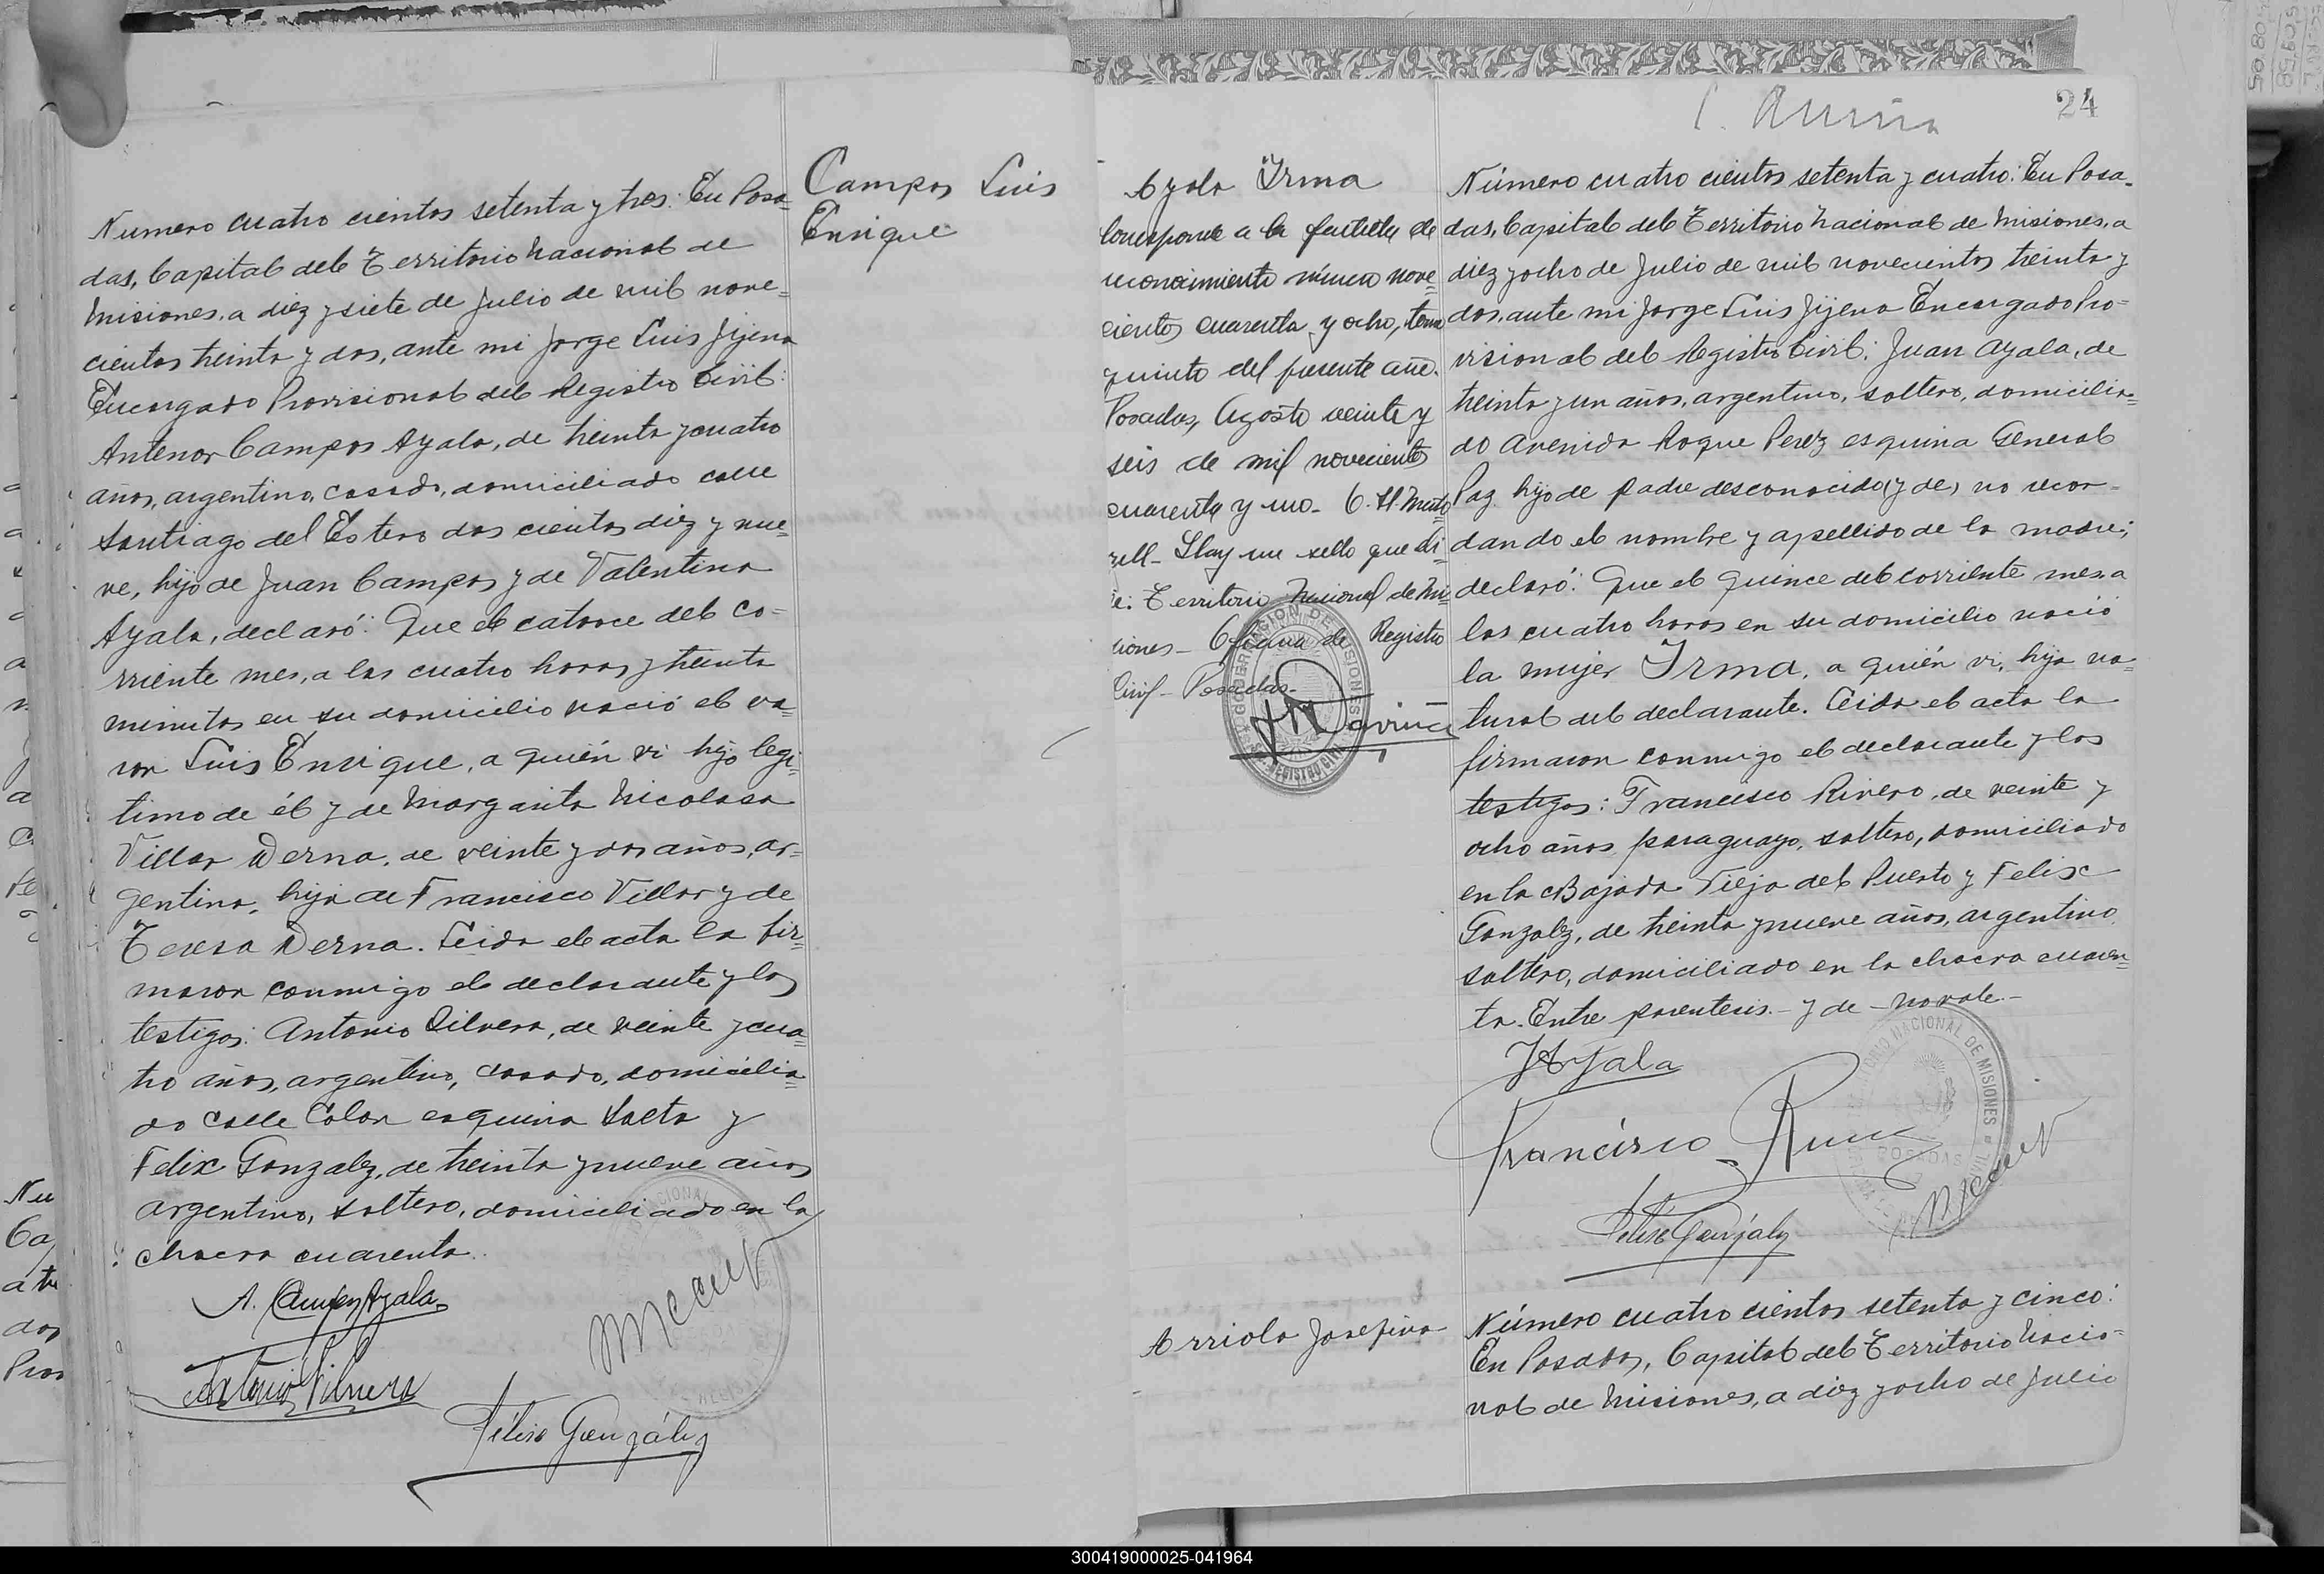 Numero cuatro cientos setenta y tres: En Posa=
das, Capital del Territorio Nacional de
Misiones, a diez y siete de Julio de mil nove=
cientos treinta y dos, ante mi Jorge Luis Jijena
Encargado Provisional del Registro Civil:
Antenor Campos Ayala, de treinta y cuatro
años, argentino, casado, domiciliado calle
Santiago del Estero dos cientos diez y nue=
ve, hijo de Juan Campos y de Valentina
Ayala, declaró: Que el catorce del co=
rriente mes, a las cuatro horas y treinta
minutos en su domicilio nació el va=
ron Luis Enrique, a quién vi hijo legi=
timo de él y de Margarita Nicolasa
Villar Derna, de veinte y dos años, ar=
gentina, hija de Francisco Villar y de
Teresa Derna. Leida el acta la fir=
maron conmigo el declarante y los
testigos: Antonio Silvera, de veinte y cua=
tro años, argentino, casado, domicilia=
do calle Colon esquina Salta y
Felix Gonzalez, de treinta y nueve años
argentino, soltero, domiciliado en la
chacra cuarenta.
A. Campos Ayala
Antonio Silvera
Félix González
Campos Luis
Enrique
24
Ayala Irma
Corresponde a la partida de
reconocimiento número nove=
cientos cuarenta y ocho, tomo
quinto del presente año.
Posadas, Agosto veinte y
seis de mil novecientos
cuarenta y uno- C. H.
Hay un sello que di
ce: Territorio Nacional de Mi=
siones- Oficina de Registro
Civil- Posadas-
GOBERNACION DE MISIONES
REGISTRO CIVIL
Número cuatro cientos setenta y cuatro: En Posa-
das, Capital del Territorio Nacional de Misiones, a
diez y ocho de Julio de mil novecientos treinta y
dos, ante mi Jorge Luis Jijena Encargado Pro=
visional del Registro Civil: Juan Ayala, de
treinta y un años, argentino, soltero, domicilia=
do Avenida Roque Perez esquina General
Paz, hijo de padre desconocido (y de) no recor=
dando el nombre y apellido de la madre;
declaró: Que el quince del corriente mes a
las cuatro horas en su domicilio nació
la mujer Irma, a quién vi, hija na=
tural del declarante. Leida el acta la
firmaron conmigo el declarante y los
testigos: Francisco Rivero, de veinte y
ocho años, paraguayo, soltero, domiciliado
en la Bajada Vieja del Puerto y Felix
Gonzalez, de treinta y nueve años, argentino
soltero, domiciliado en la chacra cuaren=
ta. Entre parentesis - y de - no vale.-
J Ayala
Francisco
Félix González
NACIONAL DE MISIONES
POSADAS
Arriola Josefina
Número cuatro cientos setenta y cinco:
En Posadas, Capital del Territorio Nacio=
nal de Misiones, a diez y ocho de Julio
300419000025-041964